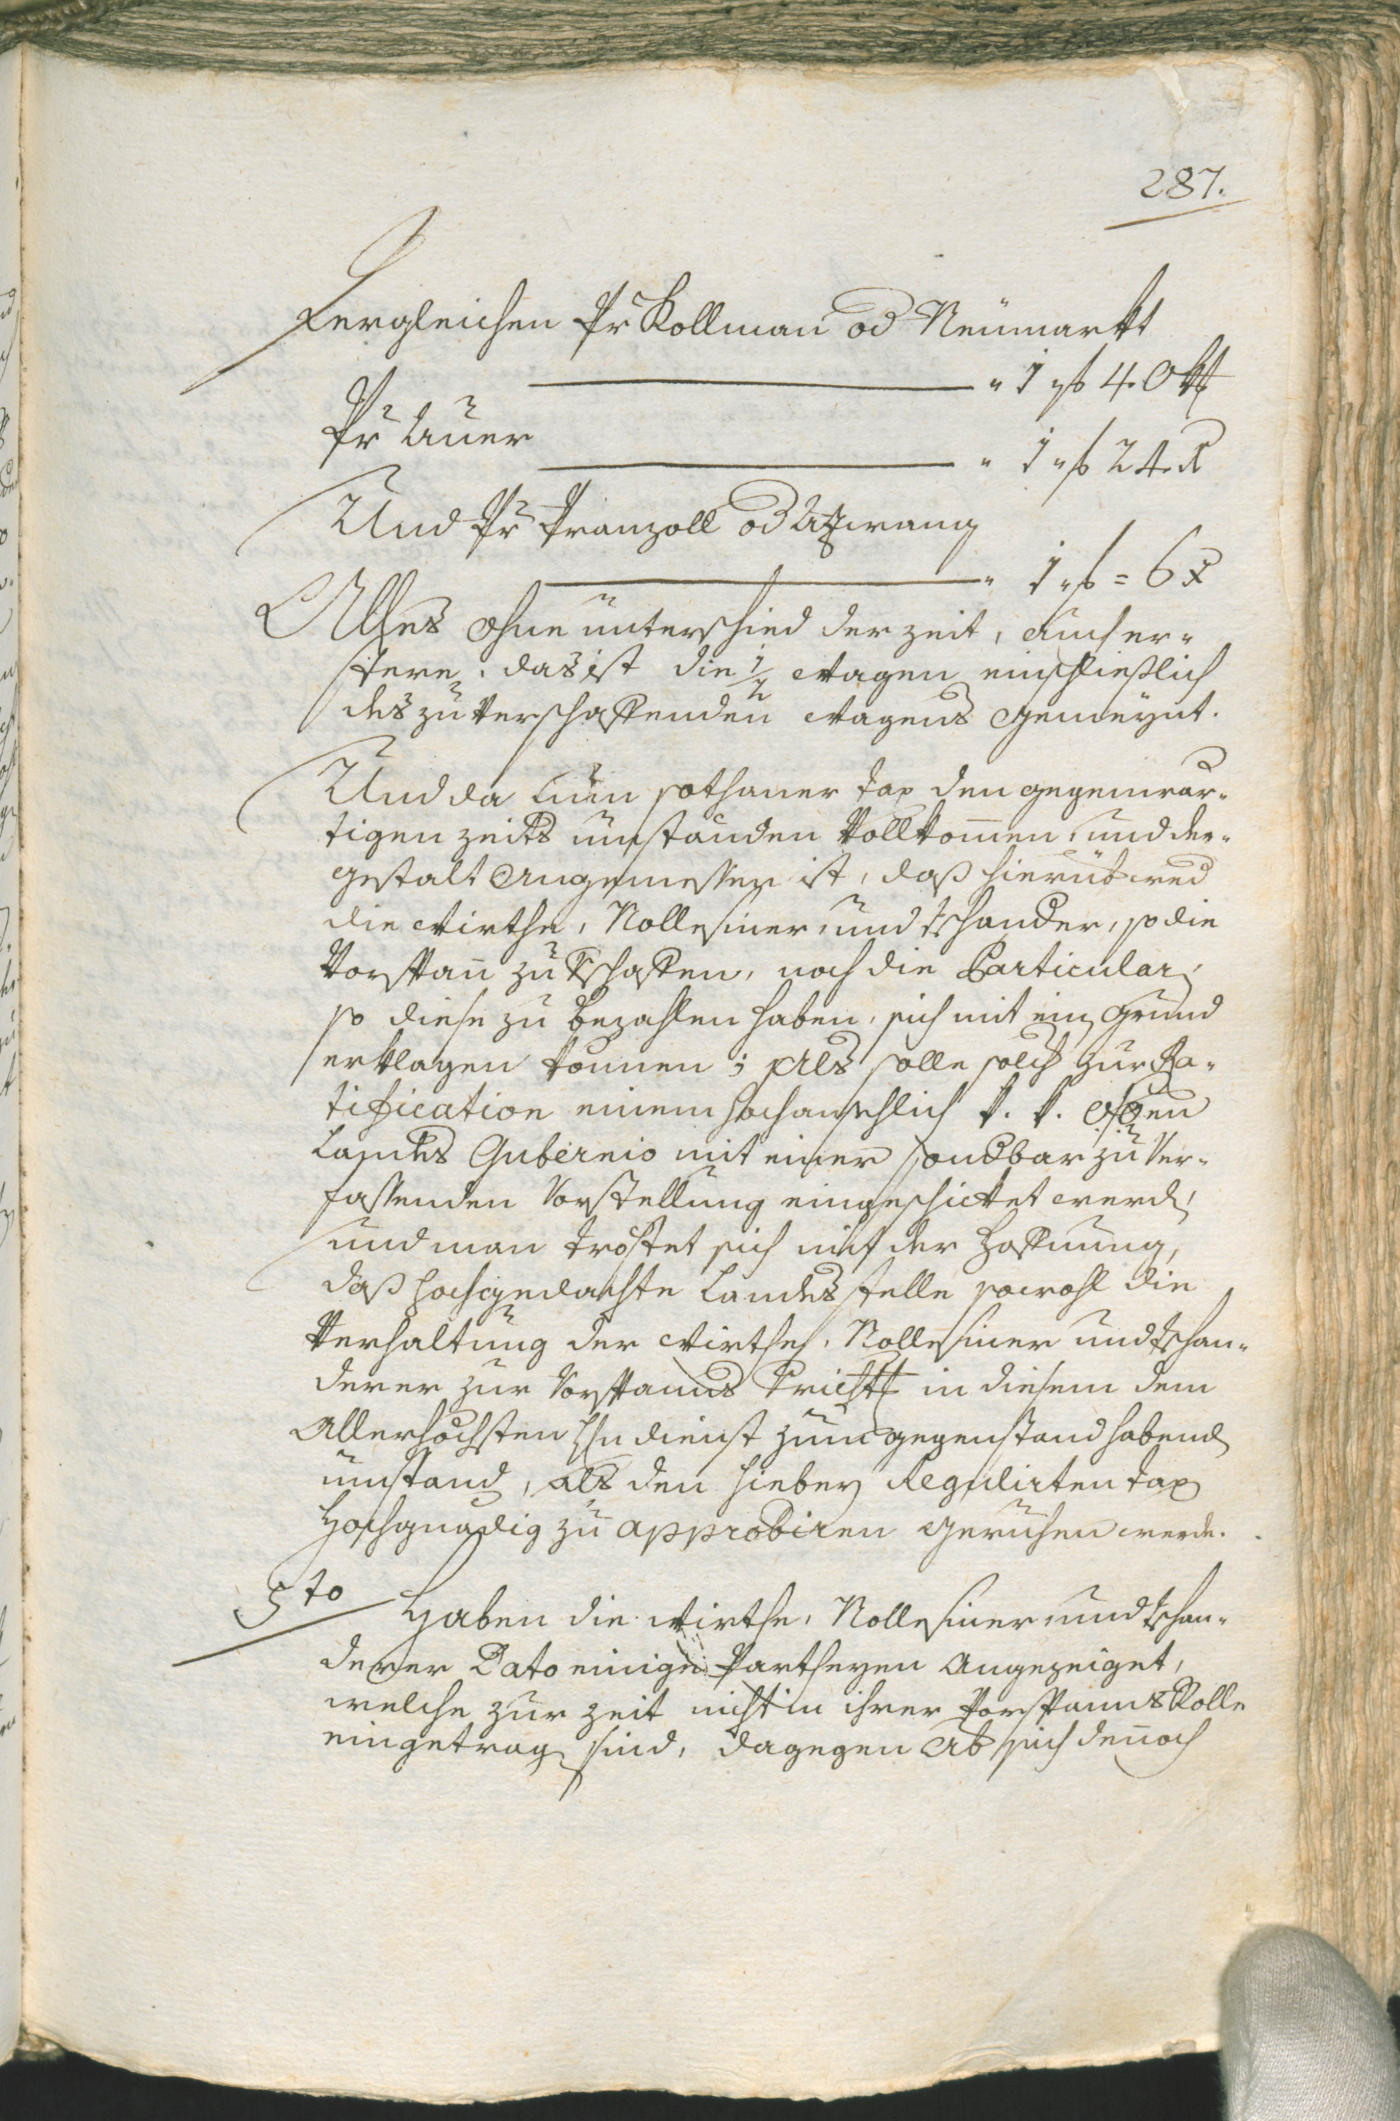 287.
Dergleichen Pr Kollman od Neümarkt
" 1 f 40 xr
Pr Auer
" 1 f 24 x
Und Pr Pranzoll od Azwang
" 1 f = 6 x
Alles ohne unterschied der zeit, auch er-
stere, das ist die 1/2 wagen einschließlich
des zu verschaffenden wagens gemeynt.
Und da nun sothaner tax den gegenwär-
tigen zeits umständen vollkommen, und der-
gestalt angemessen ist, daß hierüb wed
die Wirthe, Rollesiner und tschander, so die
Vorspan zu verschaffen, noch die Particular,
so diese zu bezahlen haben, sich mit ein grund
erklagen können; Als solle solch zur Ra-
tification einem hochansehlich k. k. OÖen
Landes Gubernio mit einer sondbar zu ver-
fassenden Vorstellung eingeschicket werd,
und man tröstet sich mit der Hoffnung,
daß hochgedachte Landes stelle sowohl die
Verhaltung der Wirthe, Rollesiner und tschan-
derer zur Vorspanns Pricht in diesem dem
Allerhöchsten dienst zum gegenstand habend
umstand, als den hiebey Regulirten tax
Hochgnädig zu approbiren geruhen werde.
5to Haben die Wirthe, Rollesiner und tschan-
derer Dato einige Partheyen angezeiget,
welche zur zeit nicht in ihrer Vorspanns Rolle
eingetrag sind, dagegen ab sich dennoch